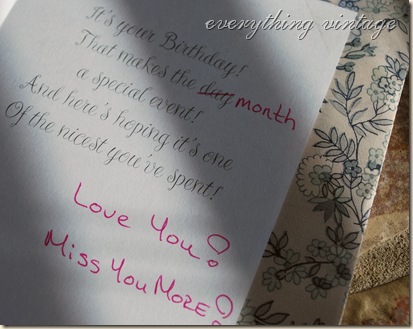 everything vintage
It's your Birthday!
That makes the day month
a special event!
And here's hoping it's one
Of the nicest you've spent!
Love You!
Miss You More!